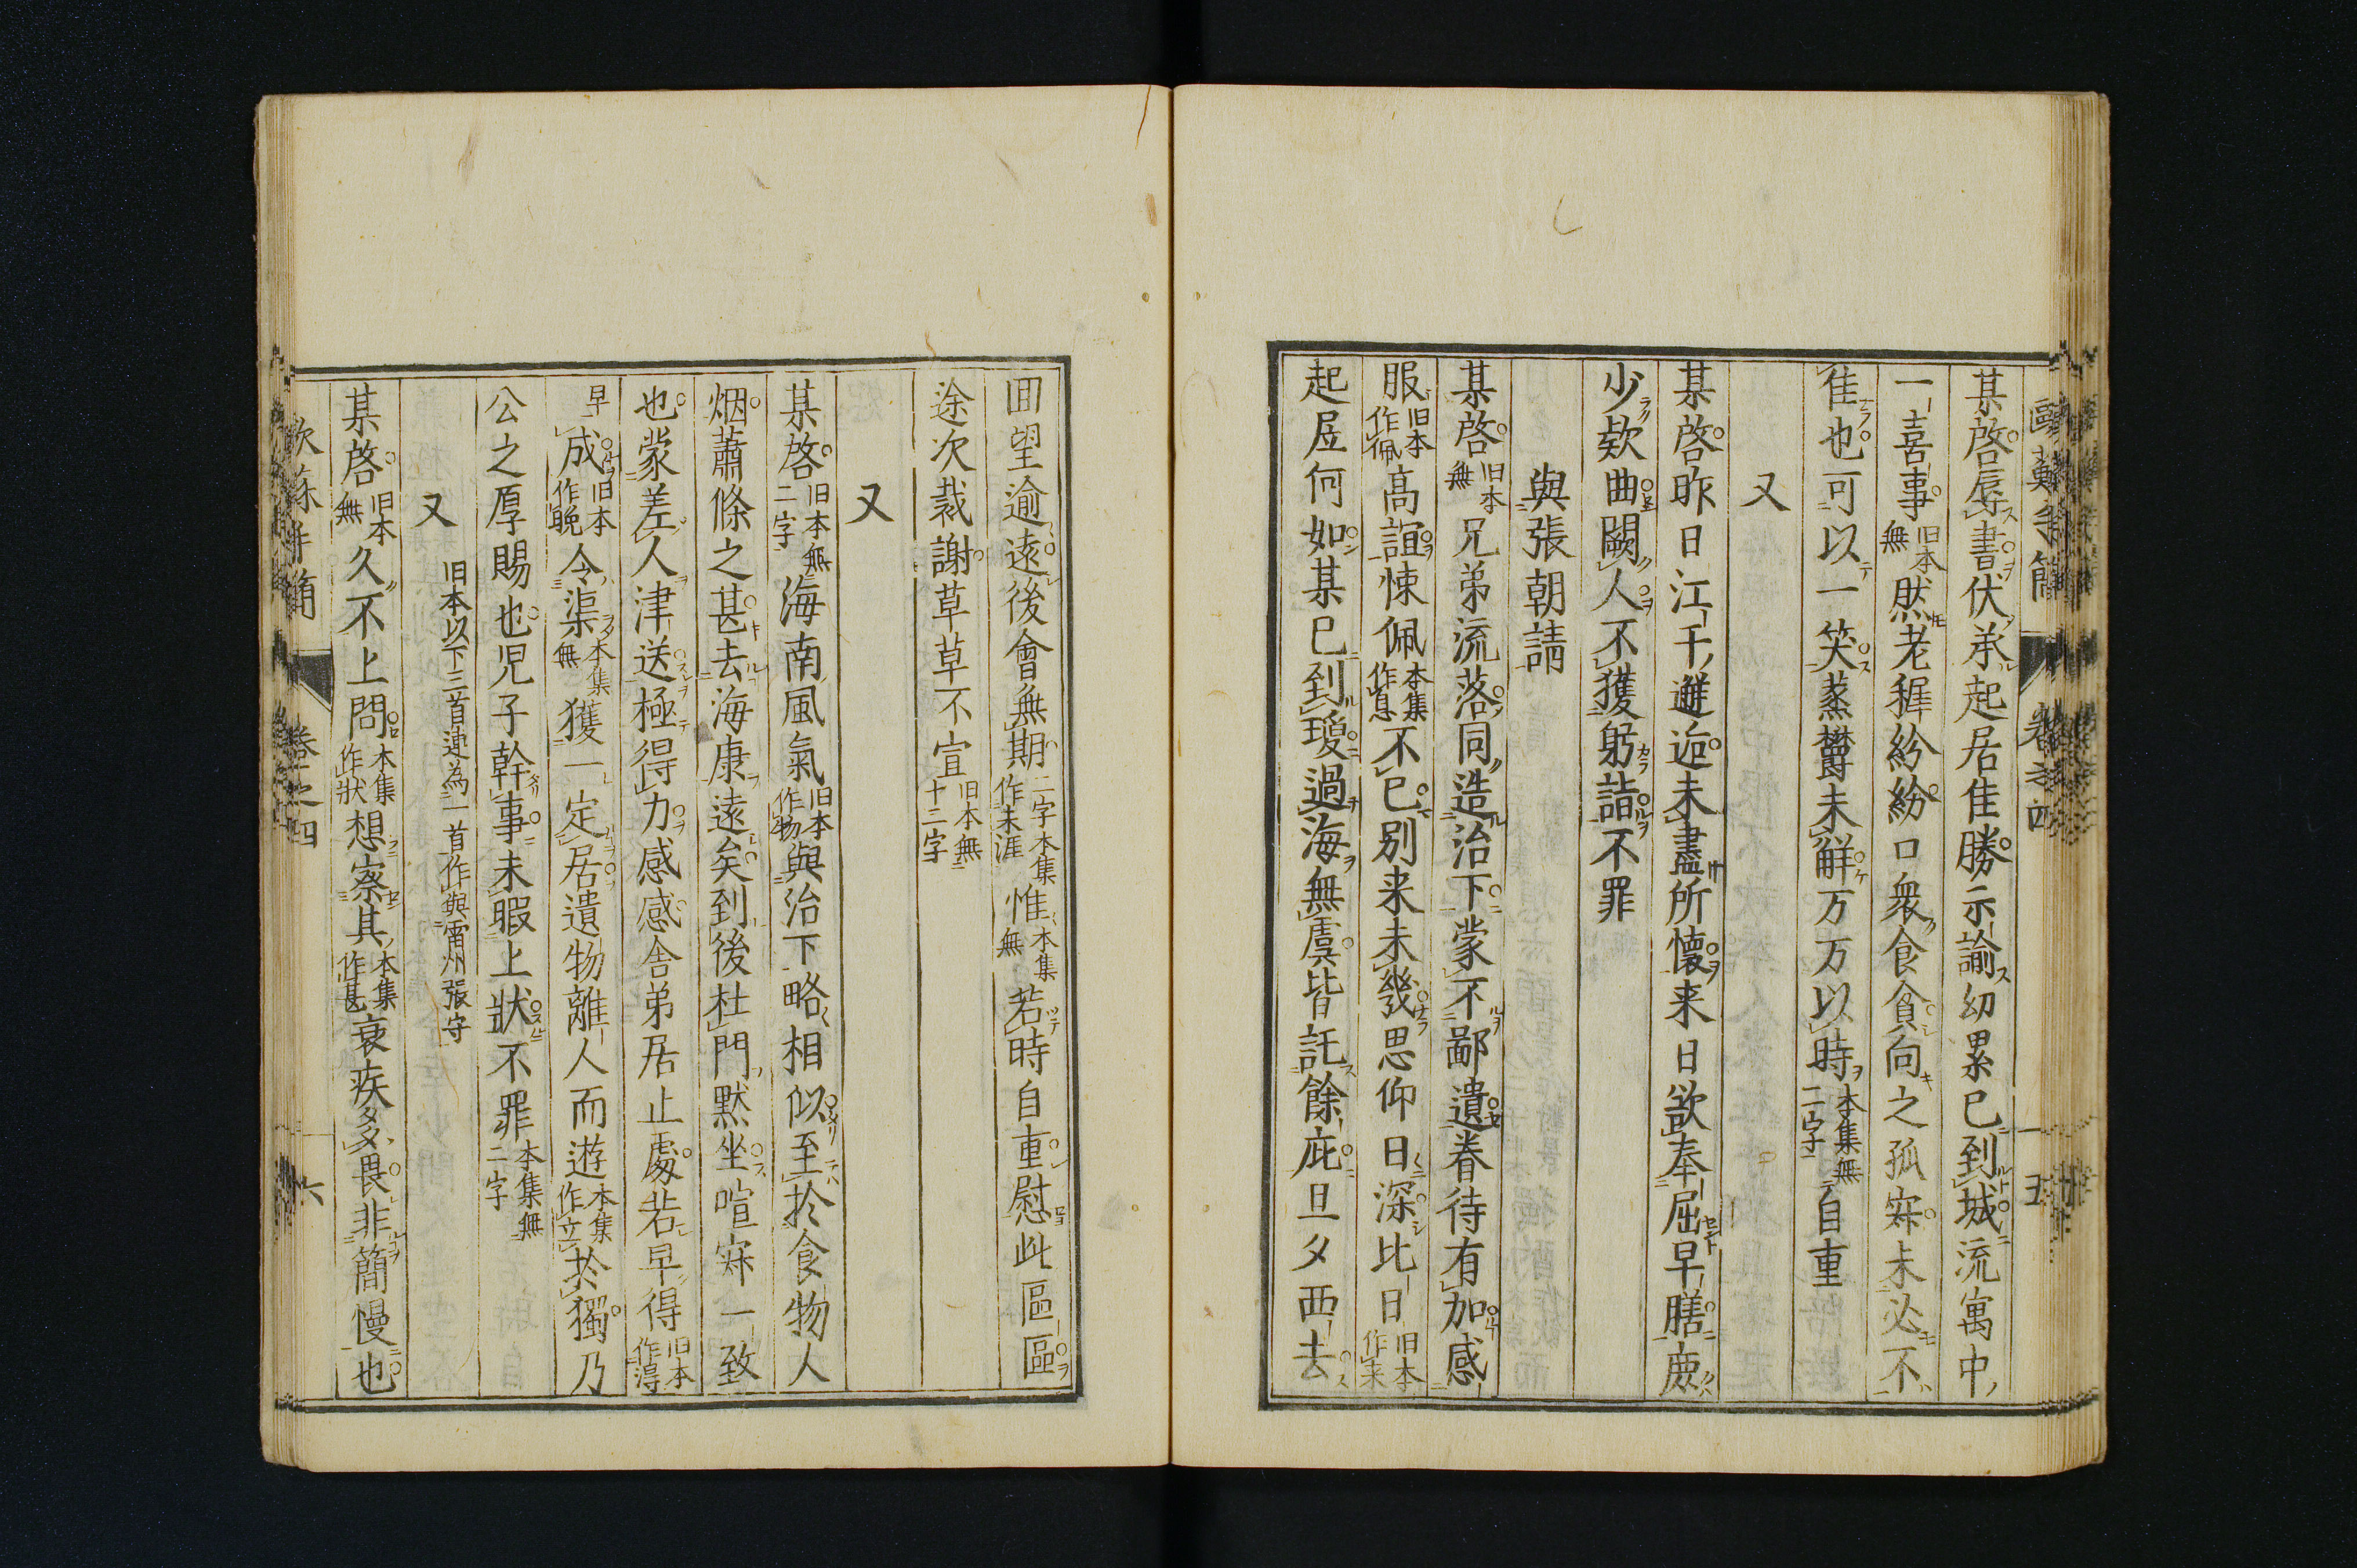 某啓辱書伏承起居佳勝示諭幼累已到城流寓中
一喜事旧本無然老稚紛紛口衆食貧向之孤寂未必不
佳也可以一笑蒸欝未觧万万以時本集無二字自重
又
某啓昨日江干邂逅未盡所懷来日欲奉屈早膳庶
少欵曲闕人不獲躬詣不罪
與張朝請
某啓旧本無兄弟流落同造治下蒙不鄙遺眷待有加感
服旧本作佩高誼悚佩本集作息不已別来未幾思仰日深比日旧本作来
起居何如某已到瓊過海無虞皆託餘庇旦夕西去
回望逾遠後會無期二字本集作未涯惟本集無若時自重慰此區區
途次裁謝草草不宣旧本無十二字
又
某啓旧本無二字海南風氣旧本作物與治下略相似至於食物人
烟蕭條之甚去海康遠矣到後杜門默坐喧寂一致
也蒙差人津送極得力感感舎弟居止處若早得旧本作淂
早成旧本作晩令渠本集無獲一定居遺物離人而遊本集作立於獨乃
公之厚賜也児子幹事未暇上状不罪本集無二字
又 旧本以下三首連為一首作與雷州張守
某啓旧本無久不上問本集作状想察其本集作甚衰疾多畏非簡慢也
歐蘓手簡 卷之四 五
欧蘇手簡 巻之四 六